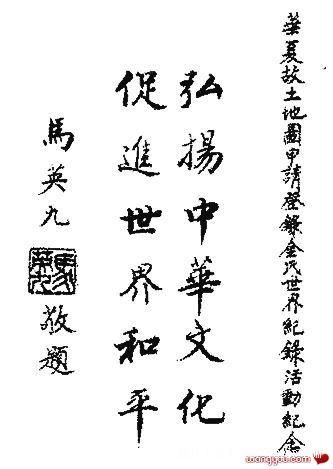 華夏故土地圖申請登錄金氏世界紀錄活動紀念
弘揚中華文化
促進世界和平
馬英九
馬英九
敬題
wangyou.com